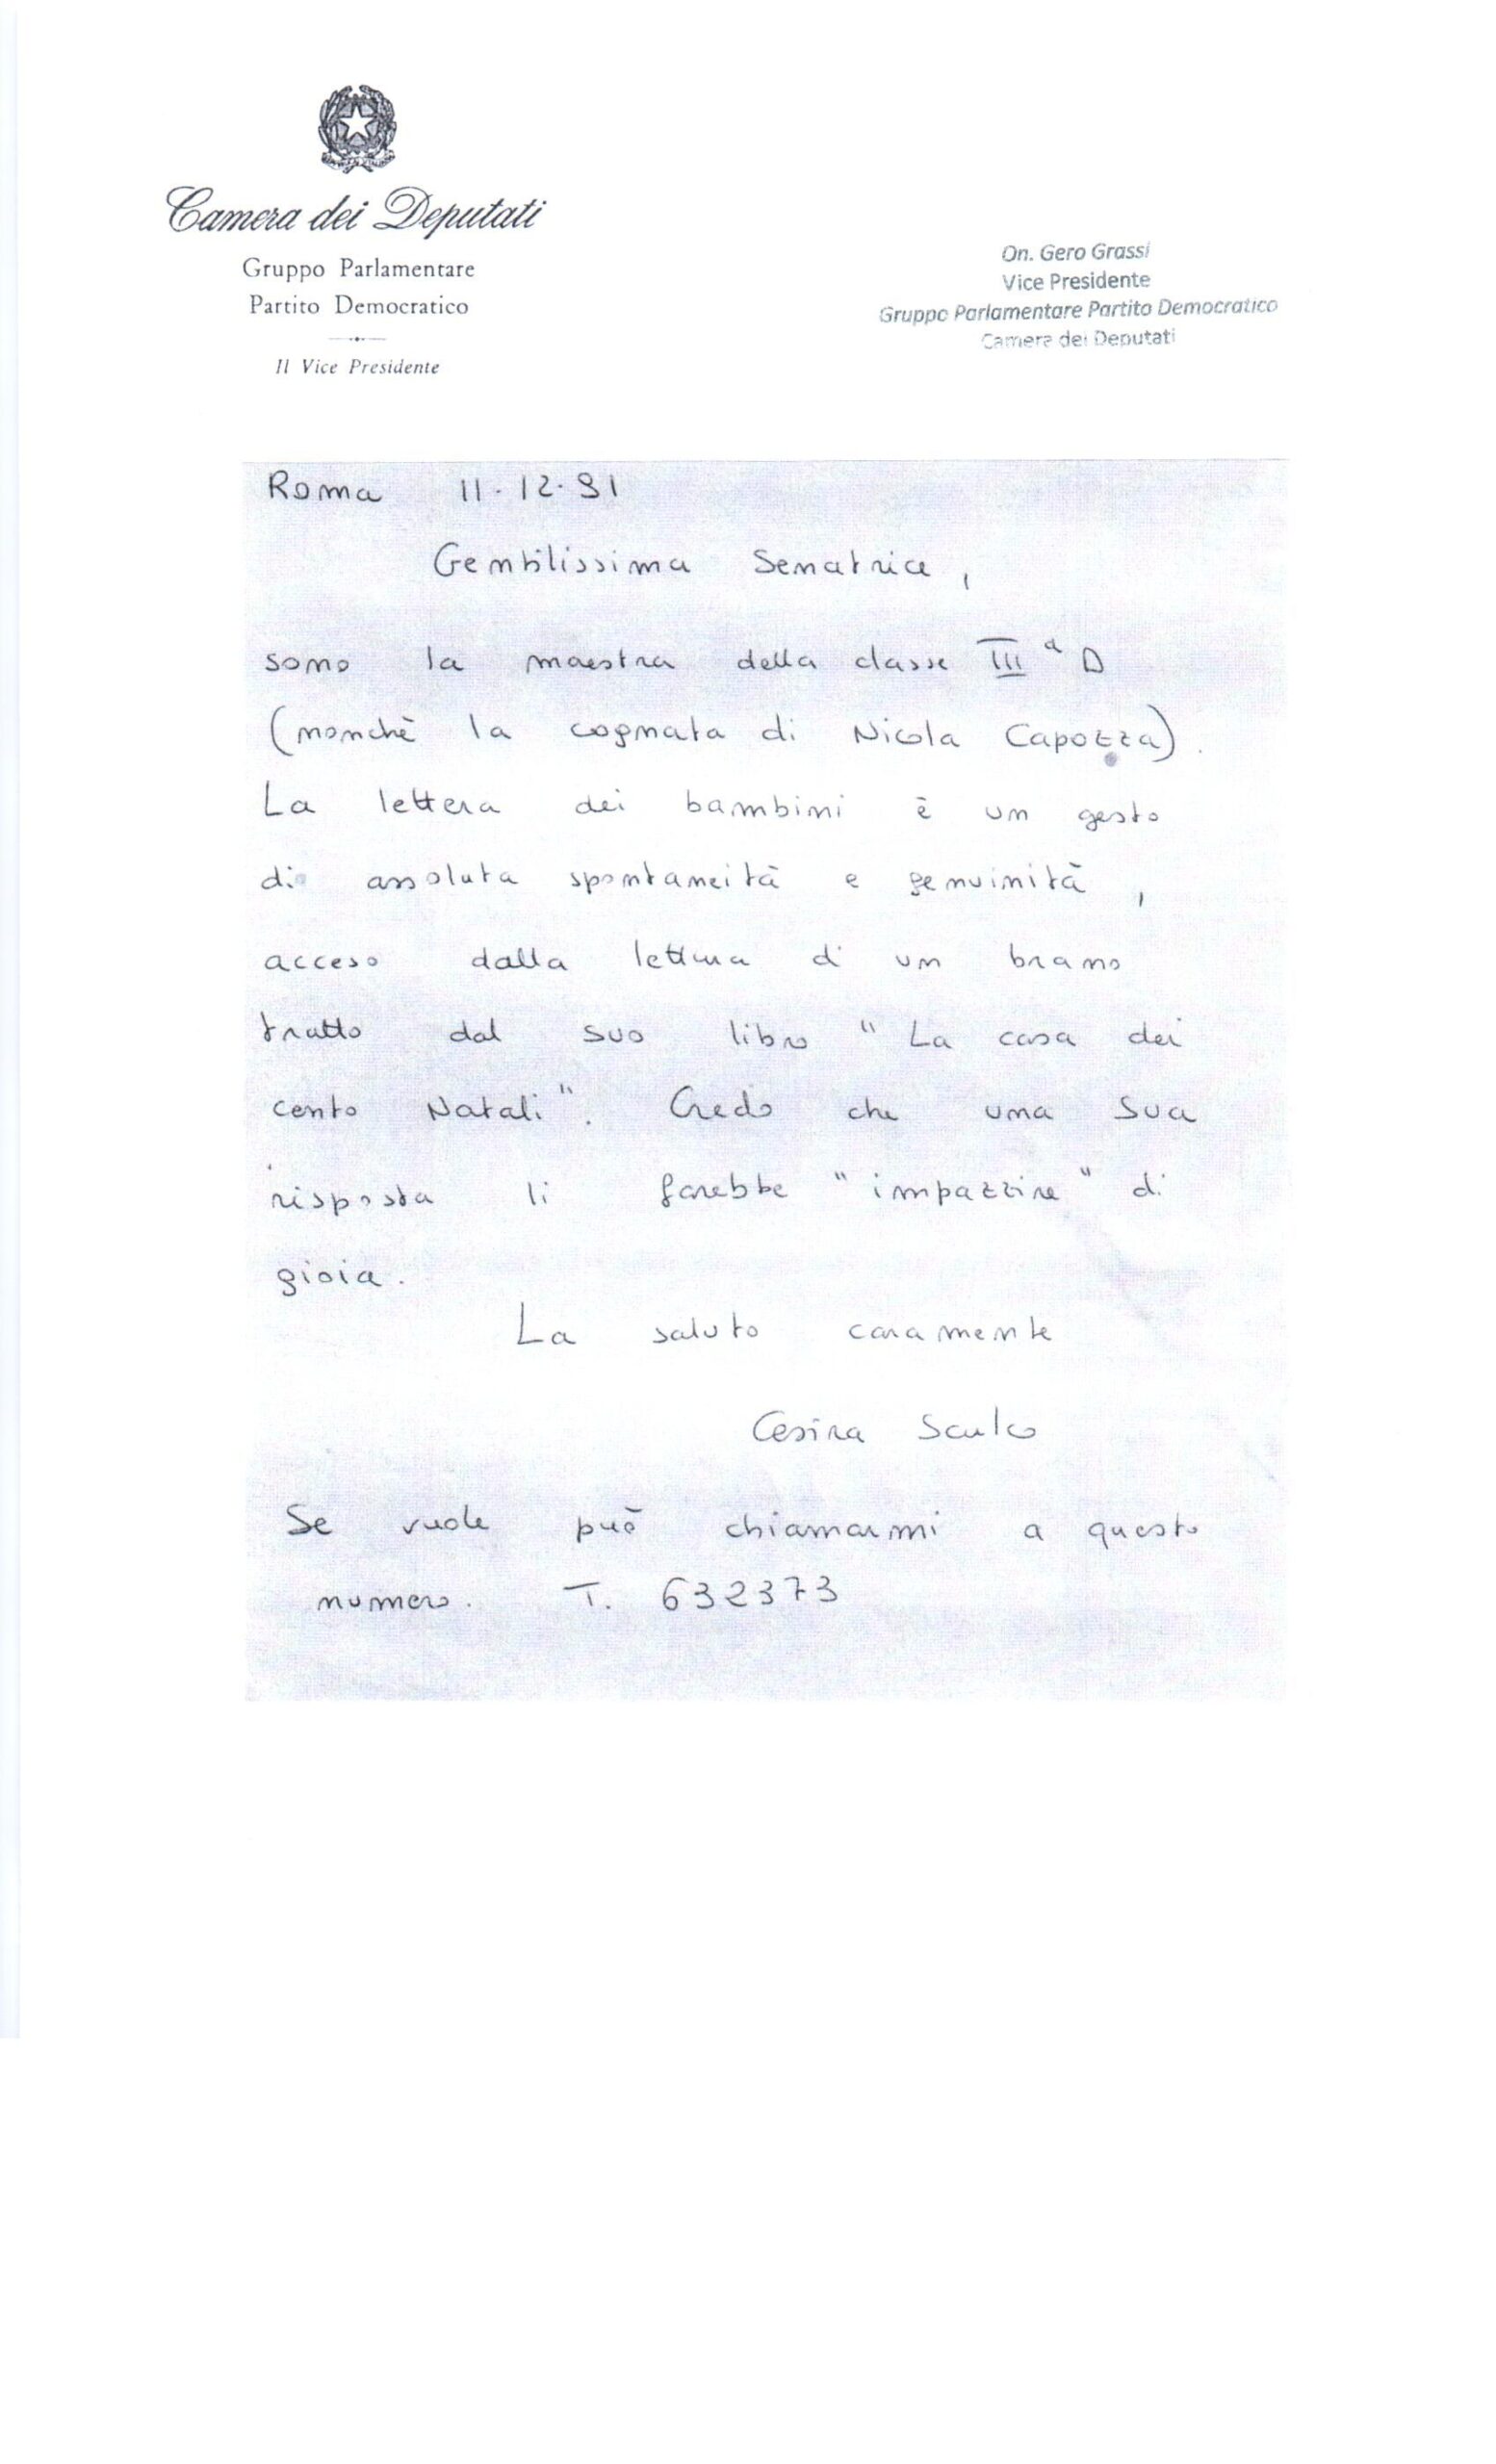 Camera dei Deputati
Gruppo Parlamentare
Partito Democratico
Il Vice Presidente
On. Gero Grassi
Vice Presidente
Gruppo Parlamentare Partito Democratico
Camera dei Deputati
Roma 11-12-91
Gentilissima Senatrice,
sono la maestra della classe IIIª D
(nonchè la cognata di Nicola Capozza).
La lettera dei bambini è un gesto
di assoluta spontaneità e genuinità,
acceso dalla lettura di un brano
tratto dal suo libro "La casa dei
cento Natali". Credo che una Sua
risposta li farebbe "impazzire" di
gioia.
La saluto caramente
Cesira Sculco
Se vuole può chiamarmi a questo
numero. T. 632373